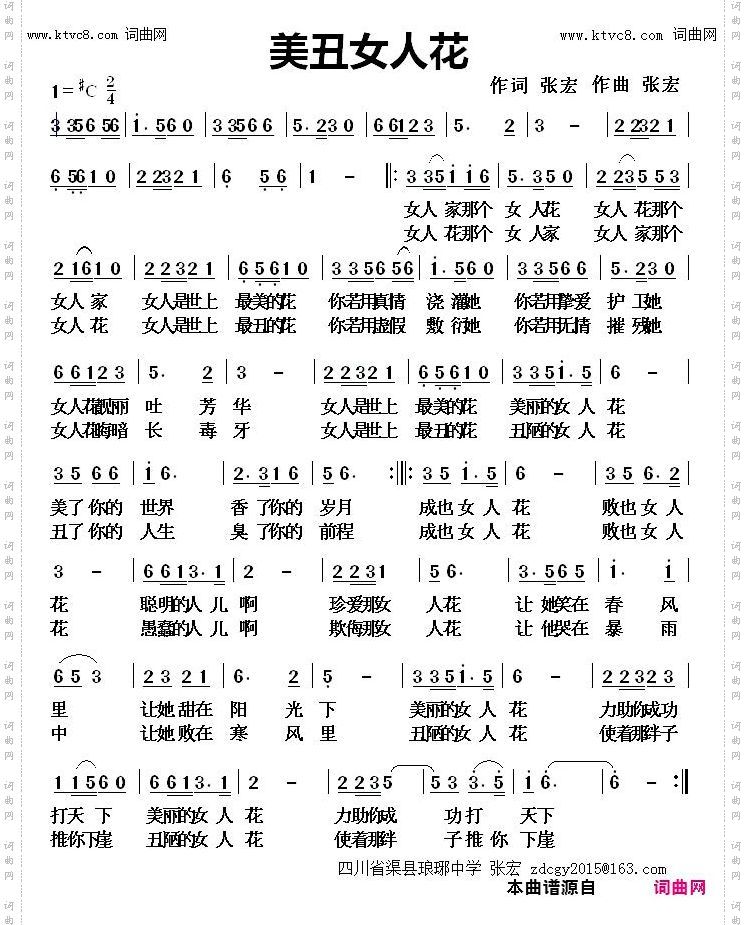 www.ktvc8.com 词曲网
美丑女人花
www.ktvc8.com 词曲网
1=#C 2/4
作词 张宏 作曲 张宏
3 3356 56 | 1·560 | 33566 | 5·230 | 66123 | 5· 2 | 3 – | 22321 |
6 5610 | 22321 | 6 56 | 1 – |: 335116 | 5·350 | 223553 |
女人 家那个 女 人花 女人 花那个
女人 花那个 女 人家 女人 家那个
21610 | 22321 | 65610 | 3356 56 | 1·560 | 33566 | 5·230 |
女人 家 女人是世上 最美的花 你若用真情 浇 灌她 你若用挚爱 护 卫她
女人 花 女人是世上 最丑的花 你若用虚假 敷 衍她 你若用无情 摧 残她
66123 | 5· 2 | 3 – | 22321 | 65610 | 3351·5 | 6 – |
女人花靓丽 吐 芳 华 女人是世上 最美的花 美丽的女 人 花
女人花晦暗 长 毒 牙 女人是世上 最丑的花 丑陋的女 人 花
35 66 | 16· | 2·316 | 56· :||: 35 1·5 | 6 – | 35 6·2 |
美了你的 世界 香 了你的 岁月 成也 女 人 花 败也 女 人
丑了你的 人生 臭 了你的 前程 成也 女 人 花 败也 女 人
3 – | 6613·1 | 2 – | 2231 | 56· | 3·565 | 1· 1 |
花 聪明的人 儿 啊 珍爱那女 人花 让 她笑在 春 风
花 愚蠢的人 儿 啊 欺侮那女 人花 让 他哭在 暴 雨
65 3 | 23 21 | 6· 2 | 5 – | 3351·5 | 6 – | 22323 |
里 让她 甜在 阳 光 下 美丽的女 人 花 力助你成功
中 让她 败在 寒 风 里 丑陋的女 人 花 使着那绊子
11560 | 6613·1 | 2 – | 2235 | 53 3·5 | 16· | 6 – :||
打天 下 美丽的女 人 花 力助你成 功打 天下
推你下崖 丑陋的女 人 花 使着那绊 子推 你 下崖
四川省渠县琅琊中学 张宏 zdcgy2015@163.com
本曲谱源自 词曲网